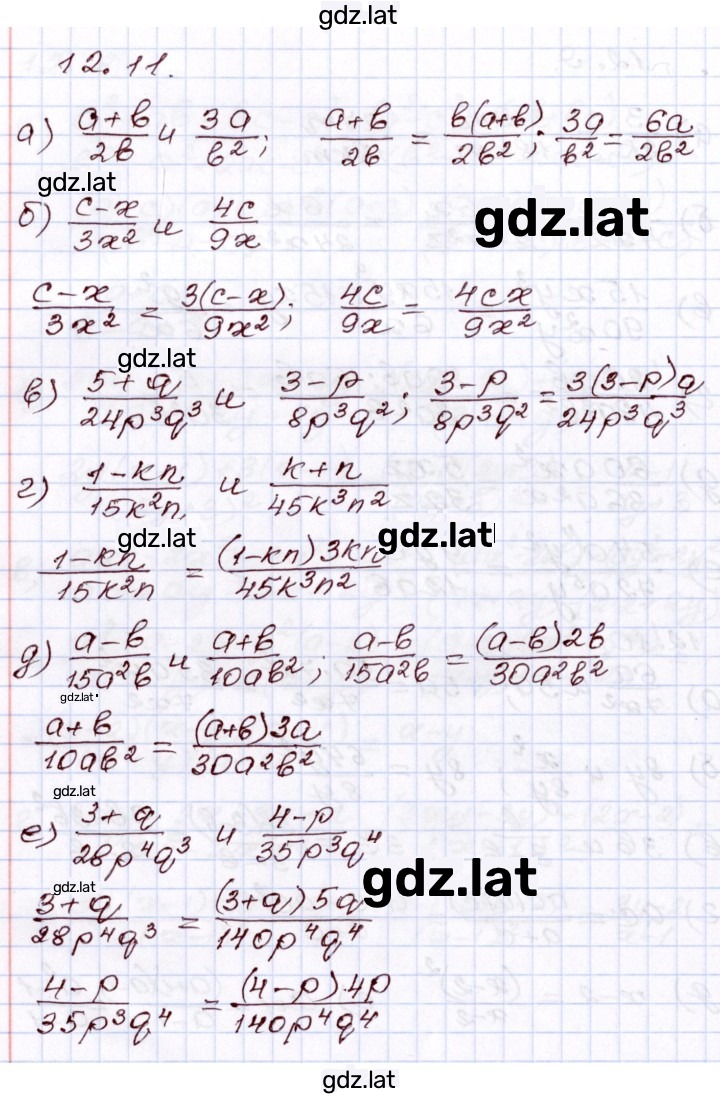 gdz.lat
12.11.
а) (a+b)/(2b) и (3a)/(b²); (a+b)/(2b) = (b(a+b))/(2b²); (3a)/(b²) = (6a)/(2b²)
gdz.lat
б) (c-x)/(3x²) и (4c)/(9x)
gdz.lat
(c-x)/(3x²) = (3(c-x))/(9x²); (4c)/(9x) = (4cx)/(9x²)
gdz.lat
в) (5+q)/(24p³q³) и (3-p)/(8p³q²); (3-p)/(8p³q²) = (3(3-p)q)/(24p³q³)
г) (1-kn)/(15k²n) и (k+n)/(45k³n²)
gdz.lat
gdz.lat
(1-kn)/(15k²n) = ((1-kn)3kn)/(45k³n²)
д) (a-b)/(15a²b) и (a+b)/(10ab²); (a-b)/(15a²b) = ((a-b)2b)/(30a²b²)
gdz.lat
(a+b)/(10ab²) = ((a+b)3a)/(30a²b²)
gdz.lat
е) (3+q)/(28p⁴q³) и (4-p)/(35p³q⁴)
gdz.lat
gdz.lat
(3+q)/(28p⁴q³) = ((3+q)5q)/(140p⁴q⁴)
(4-p)/(35p³q⁴) = ((4-p)·4p)/(140p⁴q⁴)
gdz.lat